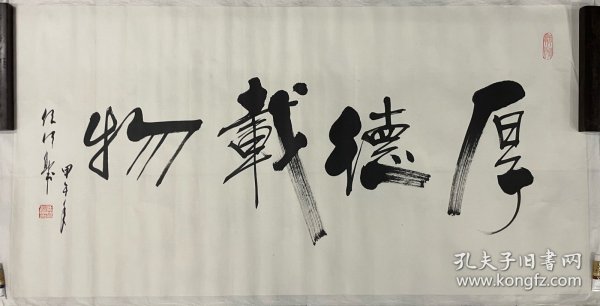 厚德載物
甲午年
孔夫子旧书网
www.kongfz.com